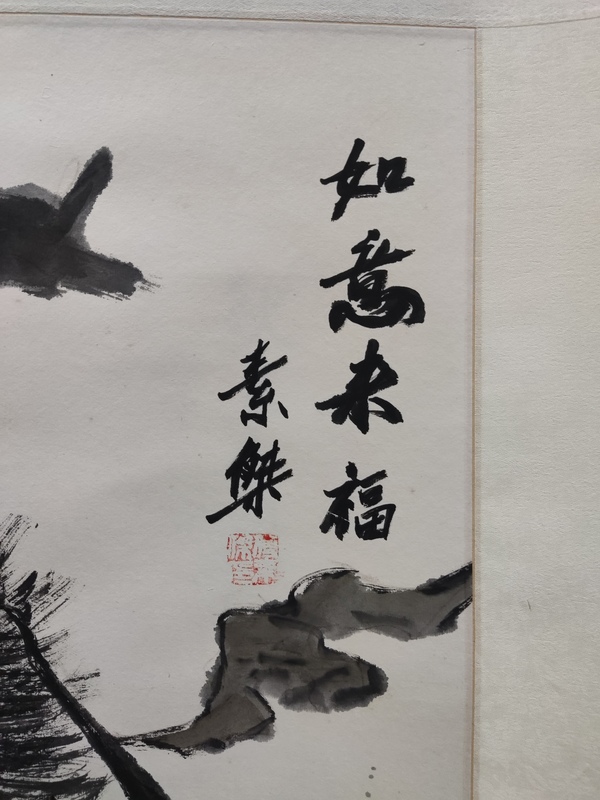 如意来福
素傑